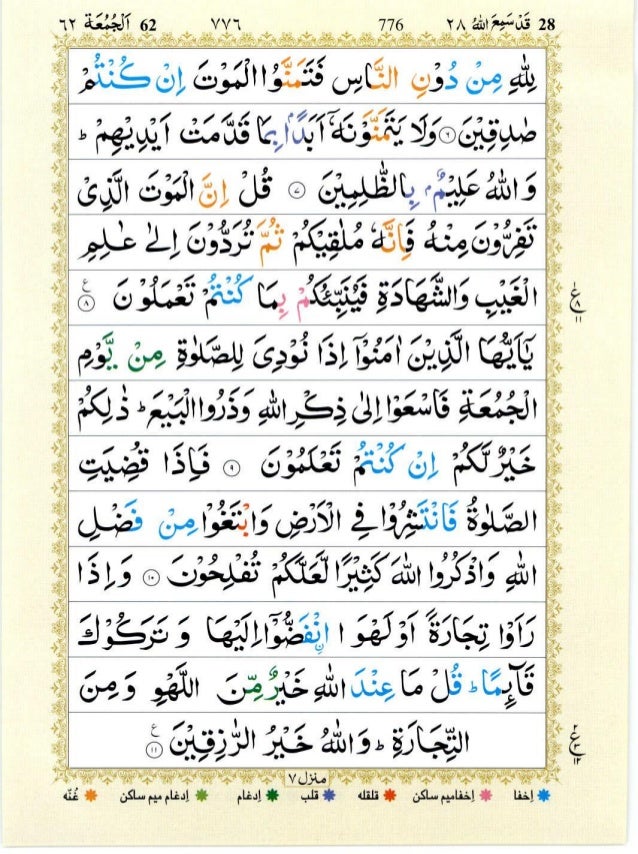 28 قَدْ سَمِعَ اللّٰهُ ٢٨ 776 ٧٧٦ 62 اَلْجُمُعَة ٦٢
لِلّٰهِ مِنْ دُوْنِ النَّاسِ فَتَمَنَّوُا الْمَوْتَ اِنْ كُنْتُمْ
صٰدِقِيْنَ ۝٦ وَلَا يَتَمَنَّوْنَهٗۤ اَبَدًۢا بِمَا قَدَّمَتْ اَيْدِيْهِمْ ؕ
وَاللّٰهُ عَلِيْمٌۢ بِالظّٰلِمِيْنَ ۝٧ قُلْ اِنَّ الْمَوْتَ الَّذِيْ
تَفِرُّوْنَ مِنْهُ فَاِنَّهٗ مُلٰقِيْكُمْ ثُمَّ تُرَدُّوْنَ اِلٰى عٰلِمِ
الْغَيْبِ وَالشَّهَادَةِ فَيُنَبِّئُكُمْ بِمَا كُنْتُمْ تَعْمَلُوْنَ ۝٨ ع
ع ٨ ١١
يٰۤاَيُّهَا الَّذِيْنَ اٰمَنُوْۤا اِذَا نُوْدِيَ لِلصَّلٰوةِ مِنْ يَّوْمِ
الْجُمُعَةِ فَاسْعَوْا اِلٰى ذِكْرِ اللّٰهِ وَذَرُوا الْبَيْعَ ؕ ذٰلِكُمْ
خَيْرٌ لَّكُمْ اِنْ كُنْتُمْ تَعْلَمُوْنَ ۝٩ فَاِذَا قُضِيَتِ
الصَّلٰوةُ فَانْتَشِرُوْا فِي الْاَرْضِ وَابْتَغُوْا مِنْ فَضْلِ
اللّٰهِ وَاذْكُرُوا اللّٰهَ كَثِيْرًا لَّعَلَّكُمْ تُفْلِحُوْنَ ۝١٠ وَاِذَا
رَاَوْا تِجَارَةً اَوْ لَهْوَا ۟انْفَضُّوْۤا اِلَيْهَا وَتَرَكُوْكَ
قَآئِمًا ؕ قُلْ مَا عِنْدَ اللّٰهِ خَيْرٌ مِّنَ اللَّهْوِ وَمِنَ
التِّجَارَةِ ؕ وَاللّٰهُ خَيْرُ الرّٰزِقِيْنَ ۝١١ ع
٢ ع ٣ ١٢
منزل ٧
اِخفا اِخفامیم ساکن قلقله قلب اِدغام اِدغام میم ساکن غُنّه